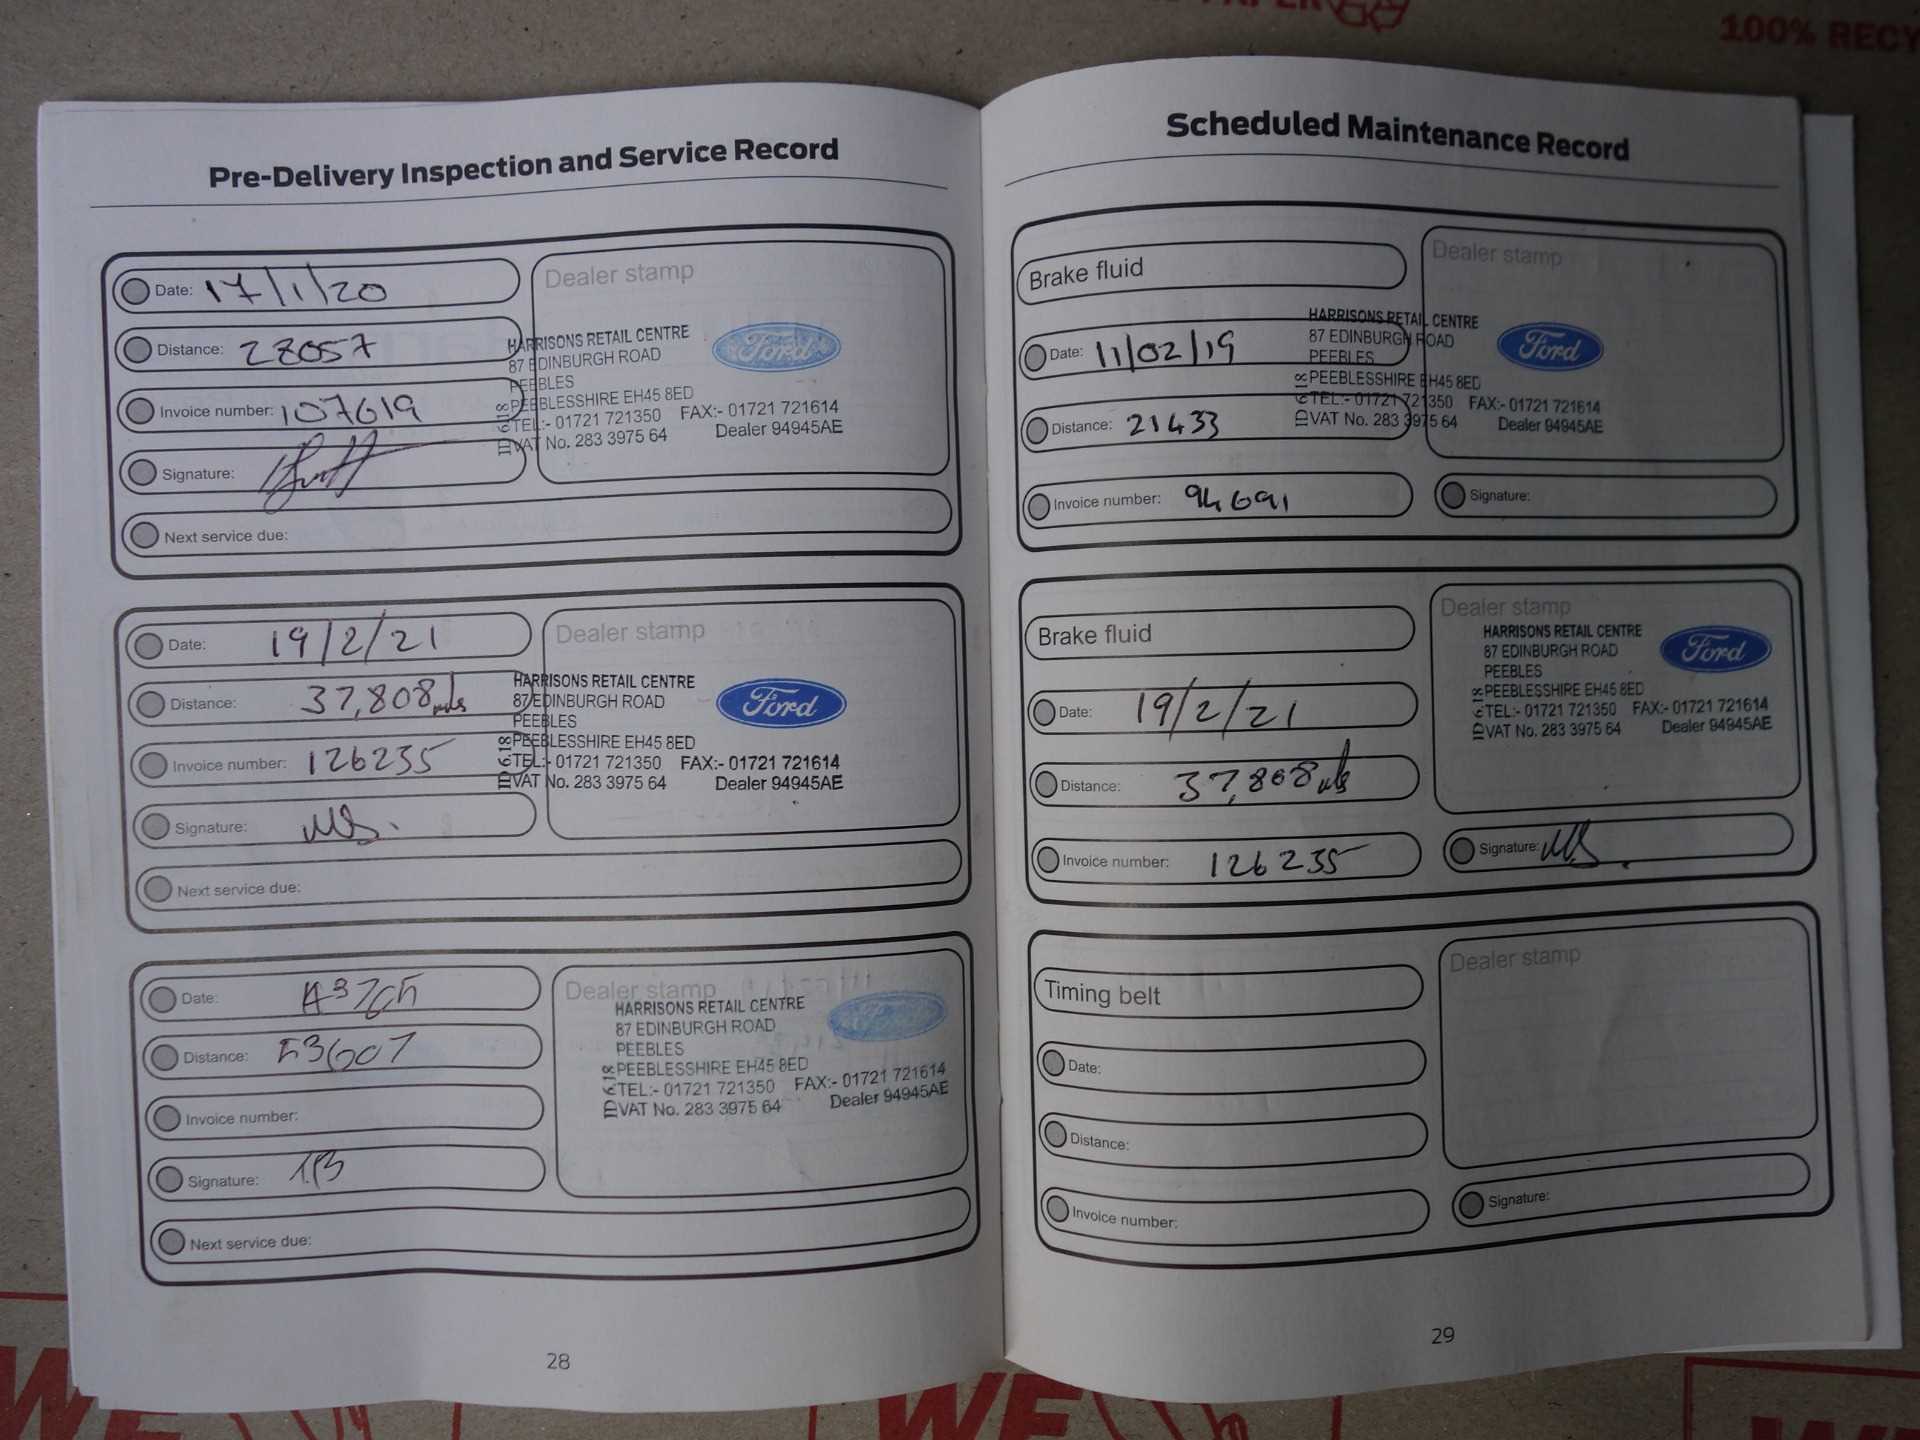 100% RECY
Pre-Delivery Inspection and Service Record
Date: 17/1/20
Distance: 28057
Invoice number: 107619
Signature:
Next service due:
Dealer stamp
HARRISONS RETAIL CENTRE
87 EDINBURGH ROAD
PEEBLES
PEEBLESSHIRE EH45 8ED
TEL:- 01721 721350 FAX:- 01721 721614
VAT No. 283 3975 64 Dealer 94945AE
ID 618
Ford
Date: 19/2/21
Distance: 37,808 mls
Invoice number: 126235
Signature:
Next service due:
Dealer stamp
HARRISONS RETAIL CENTRE
87 EDINBURGH ROAD
PEEBLES
PEEBLESSHIRE EH45 8ED
TEL:- 01721 721350 FAX:- 01721 721614
VAT No. 283 3975 64 Dealer 94945AE
ID 618
Ford
Date:
Distance:
Invoice number:
Signature:
Next service due:
Dealer stamp
HARRISONS RETAIL CENTRE
87 EDINBURGH ROAD
PEEBLES
PEEBLESSHIRE EH45 8ED
TEL:- 01721 721350 FAX:- 01721 721614
VAT No. 283 3975 64 Dealer 94945AE
ID 618
Ford
28
Scheduled Maintenance Record
Brake fluid
Date: 11/02/19
Distance: 21433
Invoice number: 94691
Dealer stamp
HARRISONS RETAIL CENTRE
87 EDINBURGH ROAD
PEEBLES
PEEBLESSHIRE EH45 8ED
TEL:- 01721 721350 FAX:- 01721 721614
VAT No. 283 3975 64 Dealer 94945AE
ID 618
Ford
Signature:
Brake fluid
Date: 19/2/21
Distance: 37,808 mls
Invoice number: 126235
Dealer stamp
HARRISONS RETAIL CENTRE
87 EDINBURGH ROAD
PEEBLES
PEEBLESSHIRE EH45 8ED
TEL:- 01721 721350 FAX:- 01721 721614
VAT No. 283 3975 64 Dealer 94945AE
ID 618
Ford
Signature:
Timing belt
Date:
Distance:
Invoice number:
Dealer stamp
Signature:
29
WE
WE